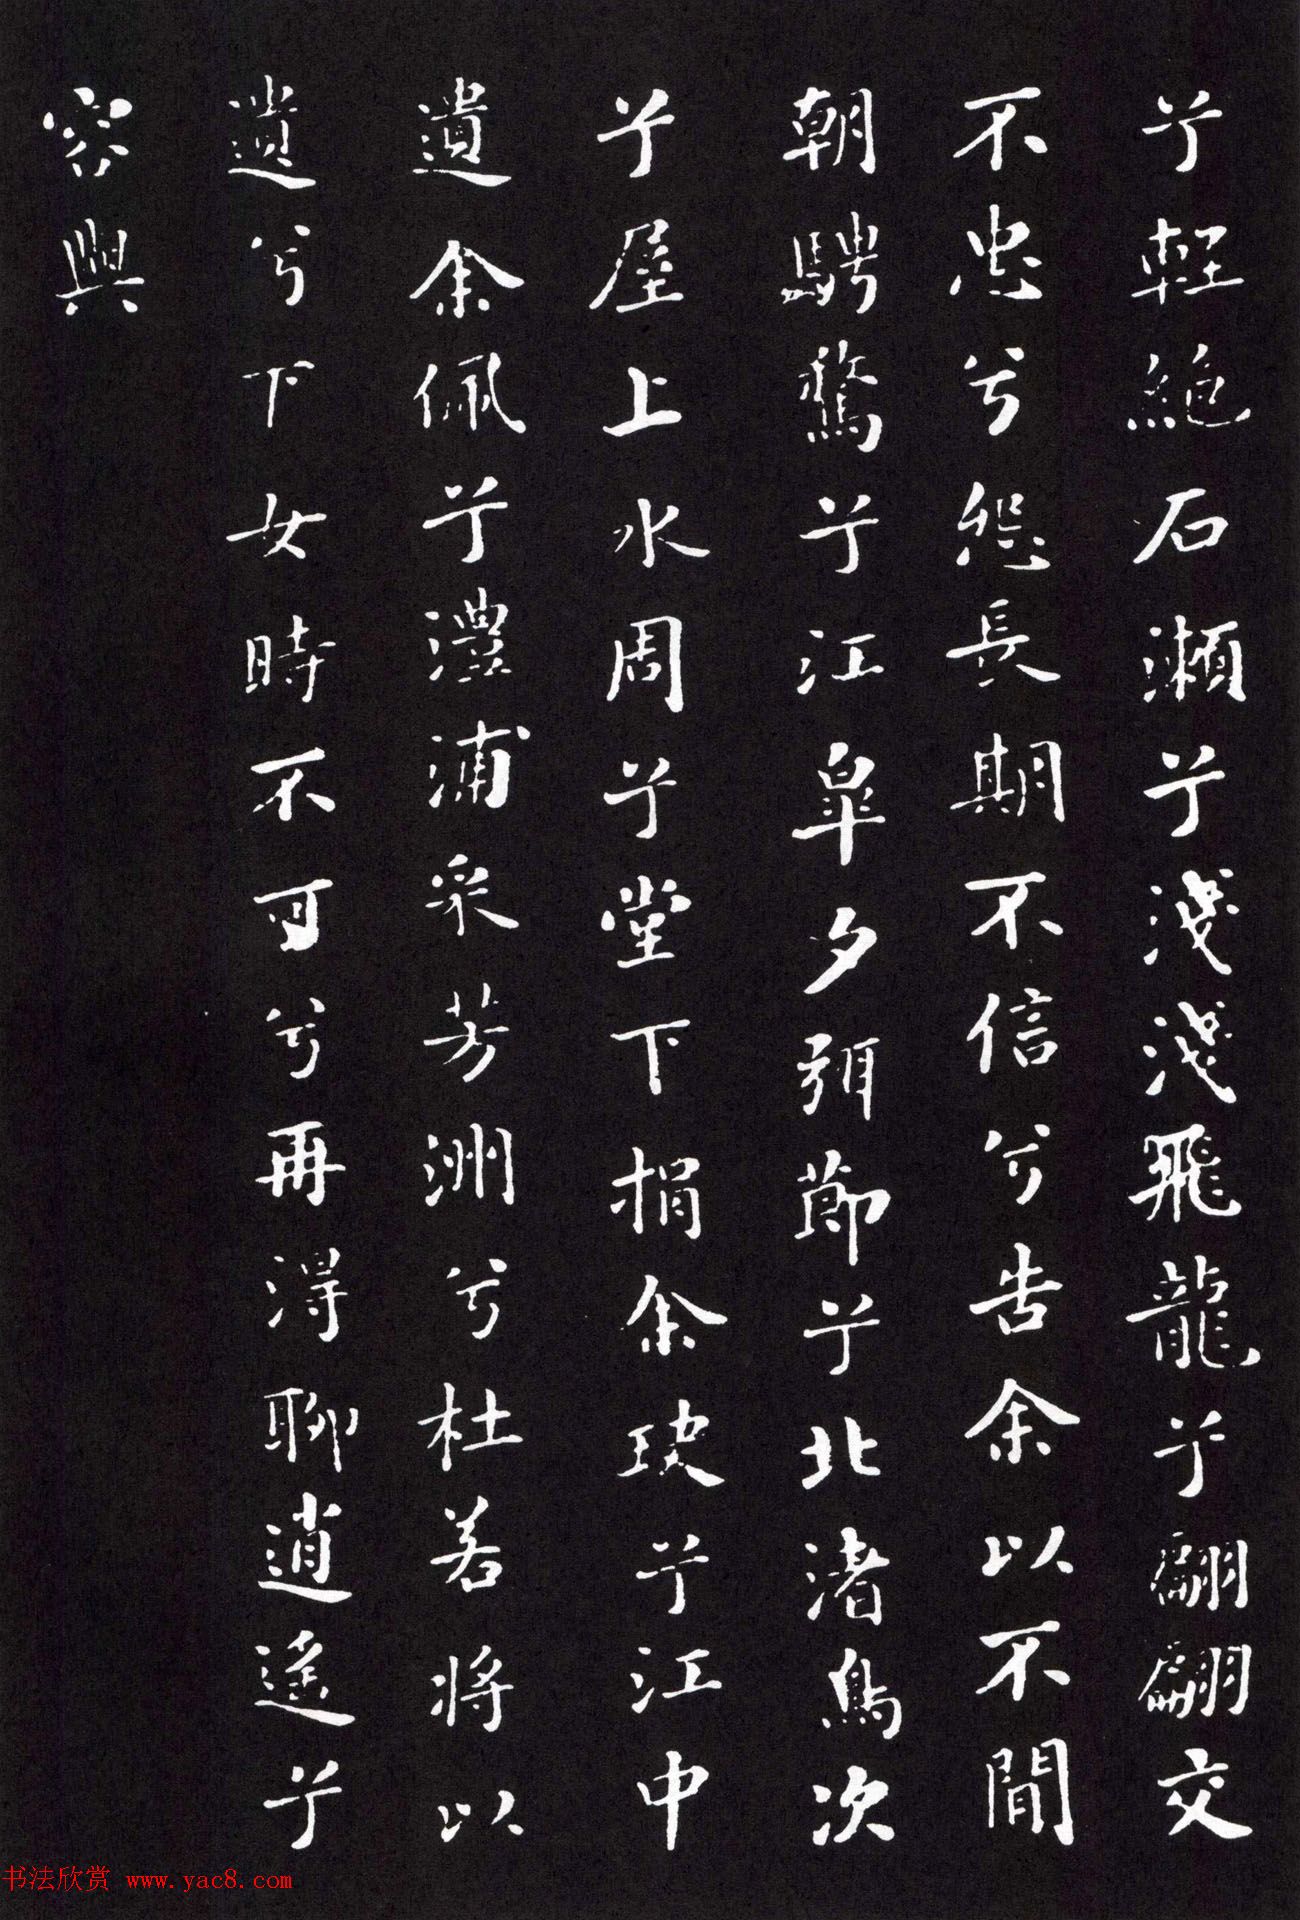 兮輕絕石瀨兮淺淺飛龍兮翩翩交
不忠兮怨長期不信兮告余以不閒
朝騁騖兮江皐夕弭節兮北渚鳥次
兮屋上水周兮堂下捐余玦兮江中
遺余佩兮澧浦采芳洲兮杜若將以
遺兮下女時不可兮再得聊逍遙兮
容與
书法欣赏 www.yac8.com